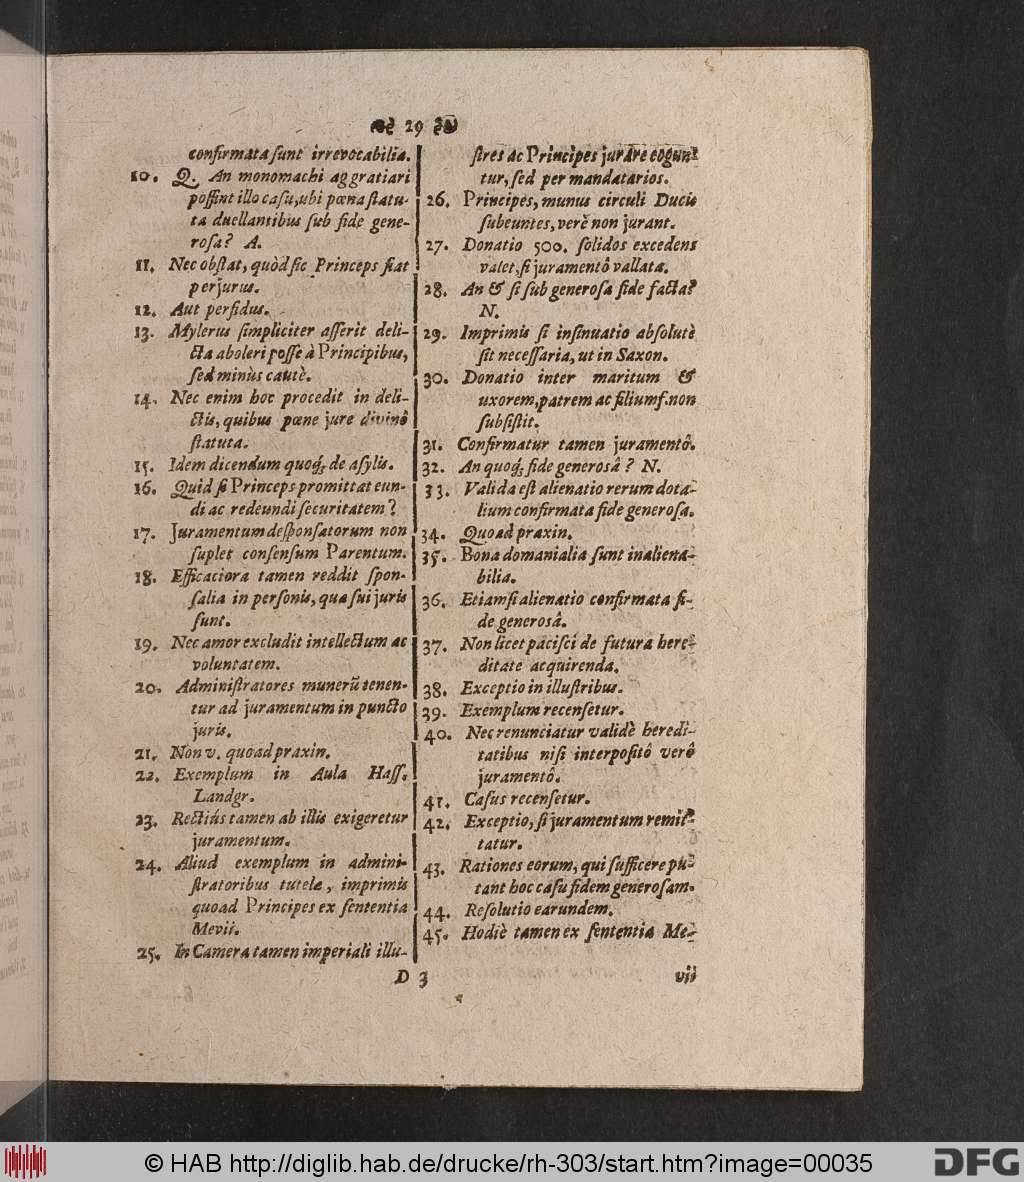 29
confirmata ſunt irrevocabilia.
10. Q. An monomachi aggratiari
poſſint illo caſu, ubi pœna ſtatu-
ta duellantibus ſub fide gene-
roſa? A.
11. Nec obſtat, quòd ſic Princeps fiat
perjurus.
12. Aut perfidus.
13. Mylerus ſimpliciter aſſerit deli-
cta aboleri poſſe à Principibus,
ſed minùs cautè.
14. Nec enim hoc procedit in deli-
ctis, quibus pœne jure divinô
ſtatuta.
15. Idem dicendum quoq; de aſylis.
16. Quid ſi Princeps promittat eun-
di ac redeundi ſecuritatem?
17. Juramentum deſponſatorum non
ſuplet conſenſum Parentum.
18. Efficaciora tamen reddit ſpon-
ſalia in perſonis, qua ſui juris
ſunt.
19. Nec amor excludit intellectum ac
voluntatem.
20. Adminiſtratores munerũ tenen-
tur ad juramentum in puncto
juris.
21. Non v. quoad praxin.
22. Exemplum in Aula Haſſ.
Landgr.
23. Rectiús tamen ab illis exigeretur
juramentum.
24. Aliud exemplum in admini-
ſtratoribus tutelæ, imprimis
quoad Principes ex ſententia
Mevii.
25. In Camera tamen imperiali illu-
ſtres ac Principes jurare cogun-
tur, ſed per mandatarios.
26. Principes, munus circuli Ducis
ſubeuntes, verè non jurant.
27. Donatio 500. ſolidos excedens
valet, ſi juramentô vallata.
28. An & ſi ſub generoſa fide facta?
N.
29. Imprimis ſi inſinuatio abſolutè
ſit neceſſaria, ut in Saxon.
30. Donatio inter maritum &
uxorem, patrem ac filiumf. non
ſubſiſtit.
31. Confirmatur tamen juramentô.
32. An quoq; fide generosâ? N.
33. Valida eſt alienatio rerum dota-
lium confirmata fide generoſa.
34. Quoad praxin.
35. Bona domanialia ſunt inaliena-
bilia.
36. Etiamſi alienatio confirmata fi-
de generosâ.
37. Non licet paciſci de futura here-
ditate acquirenda.
38. Exceptio in illuſtribus.
39. Exemplum recenſetur.
40. Nec renunciatur validè heredi-
tatibus niſi interpoſitô verô
juramentô.
41. Caſus recenſetur.
42. Exceptio, ſi juramentum remit-
tatur.
43. Rationes eorum, qui ſufficere pu-
tant hoc caſu fidem generoſam.
44. Reſolutio earundem.
45. Hodiè tamen ex ſententia Me-
D 3
vii
© HAB http://diglib.hab.de/drucke/rh-303/start.htm?image=00035
DFG